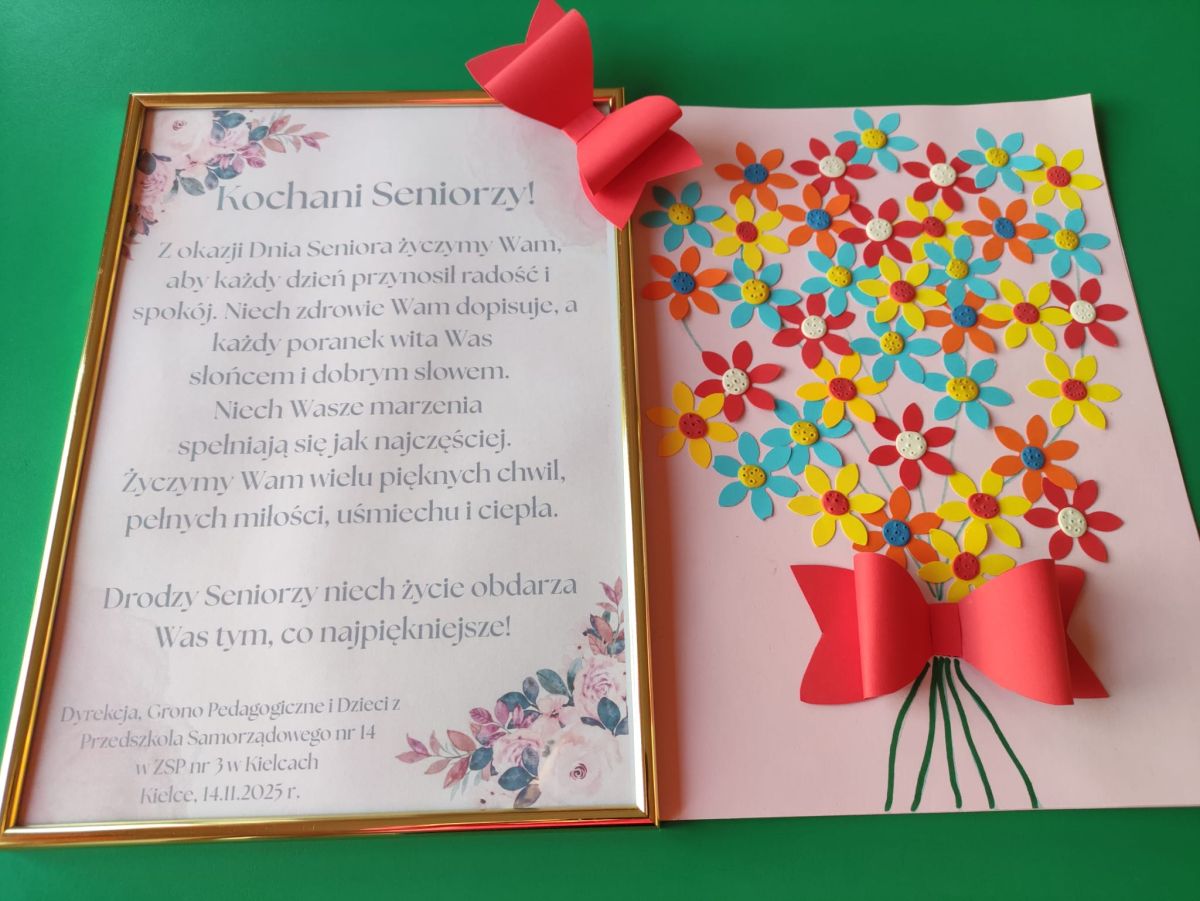 Kochani Seniorzy!
Z okazji Dnia Seniora życzymy Wam,
aby każdy dzień przynosił radość i
spokój. Niech zdrowie Wam dopisuje, a
każdy poranek wita Was
słońcem i dobrym słowem.
Niech Wasze marzenia
spełniają się jak najczęściej.
Życzymy Wam wielu pięknych chwil,
pełnych miłości, uśmiechu i ciepła.
Drodzy Seniorzy niech życie obdarza
Was tym, co najpiękniejsze!
Dyrekcja, Grono Pedagogiczne i Dzieci z
Przedszkola Samorządowego nr 14
w ZSP nr 3 w Kielcach
Kielce, 14.11.2025 r.